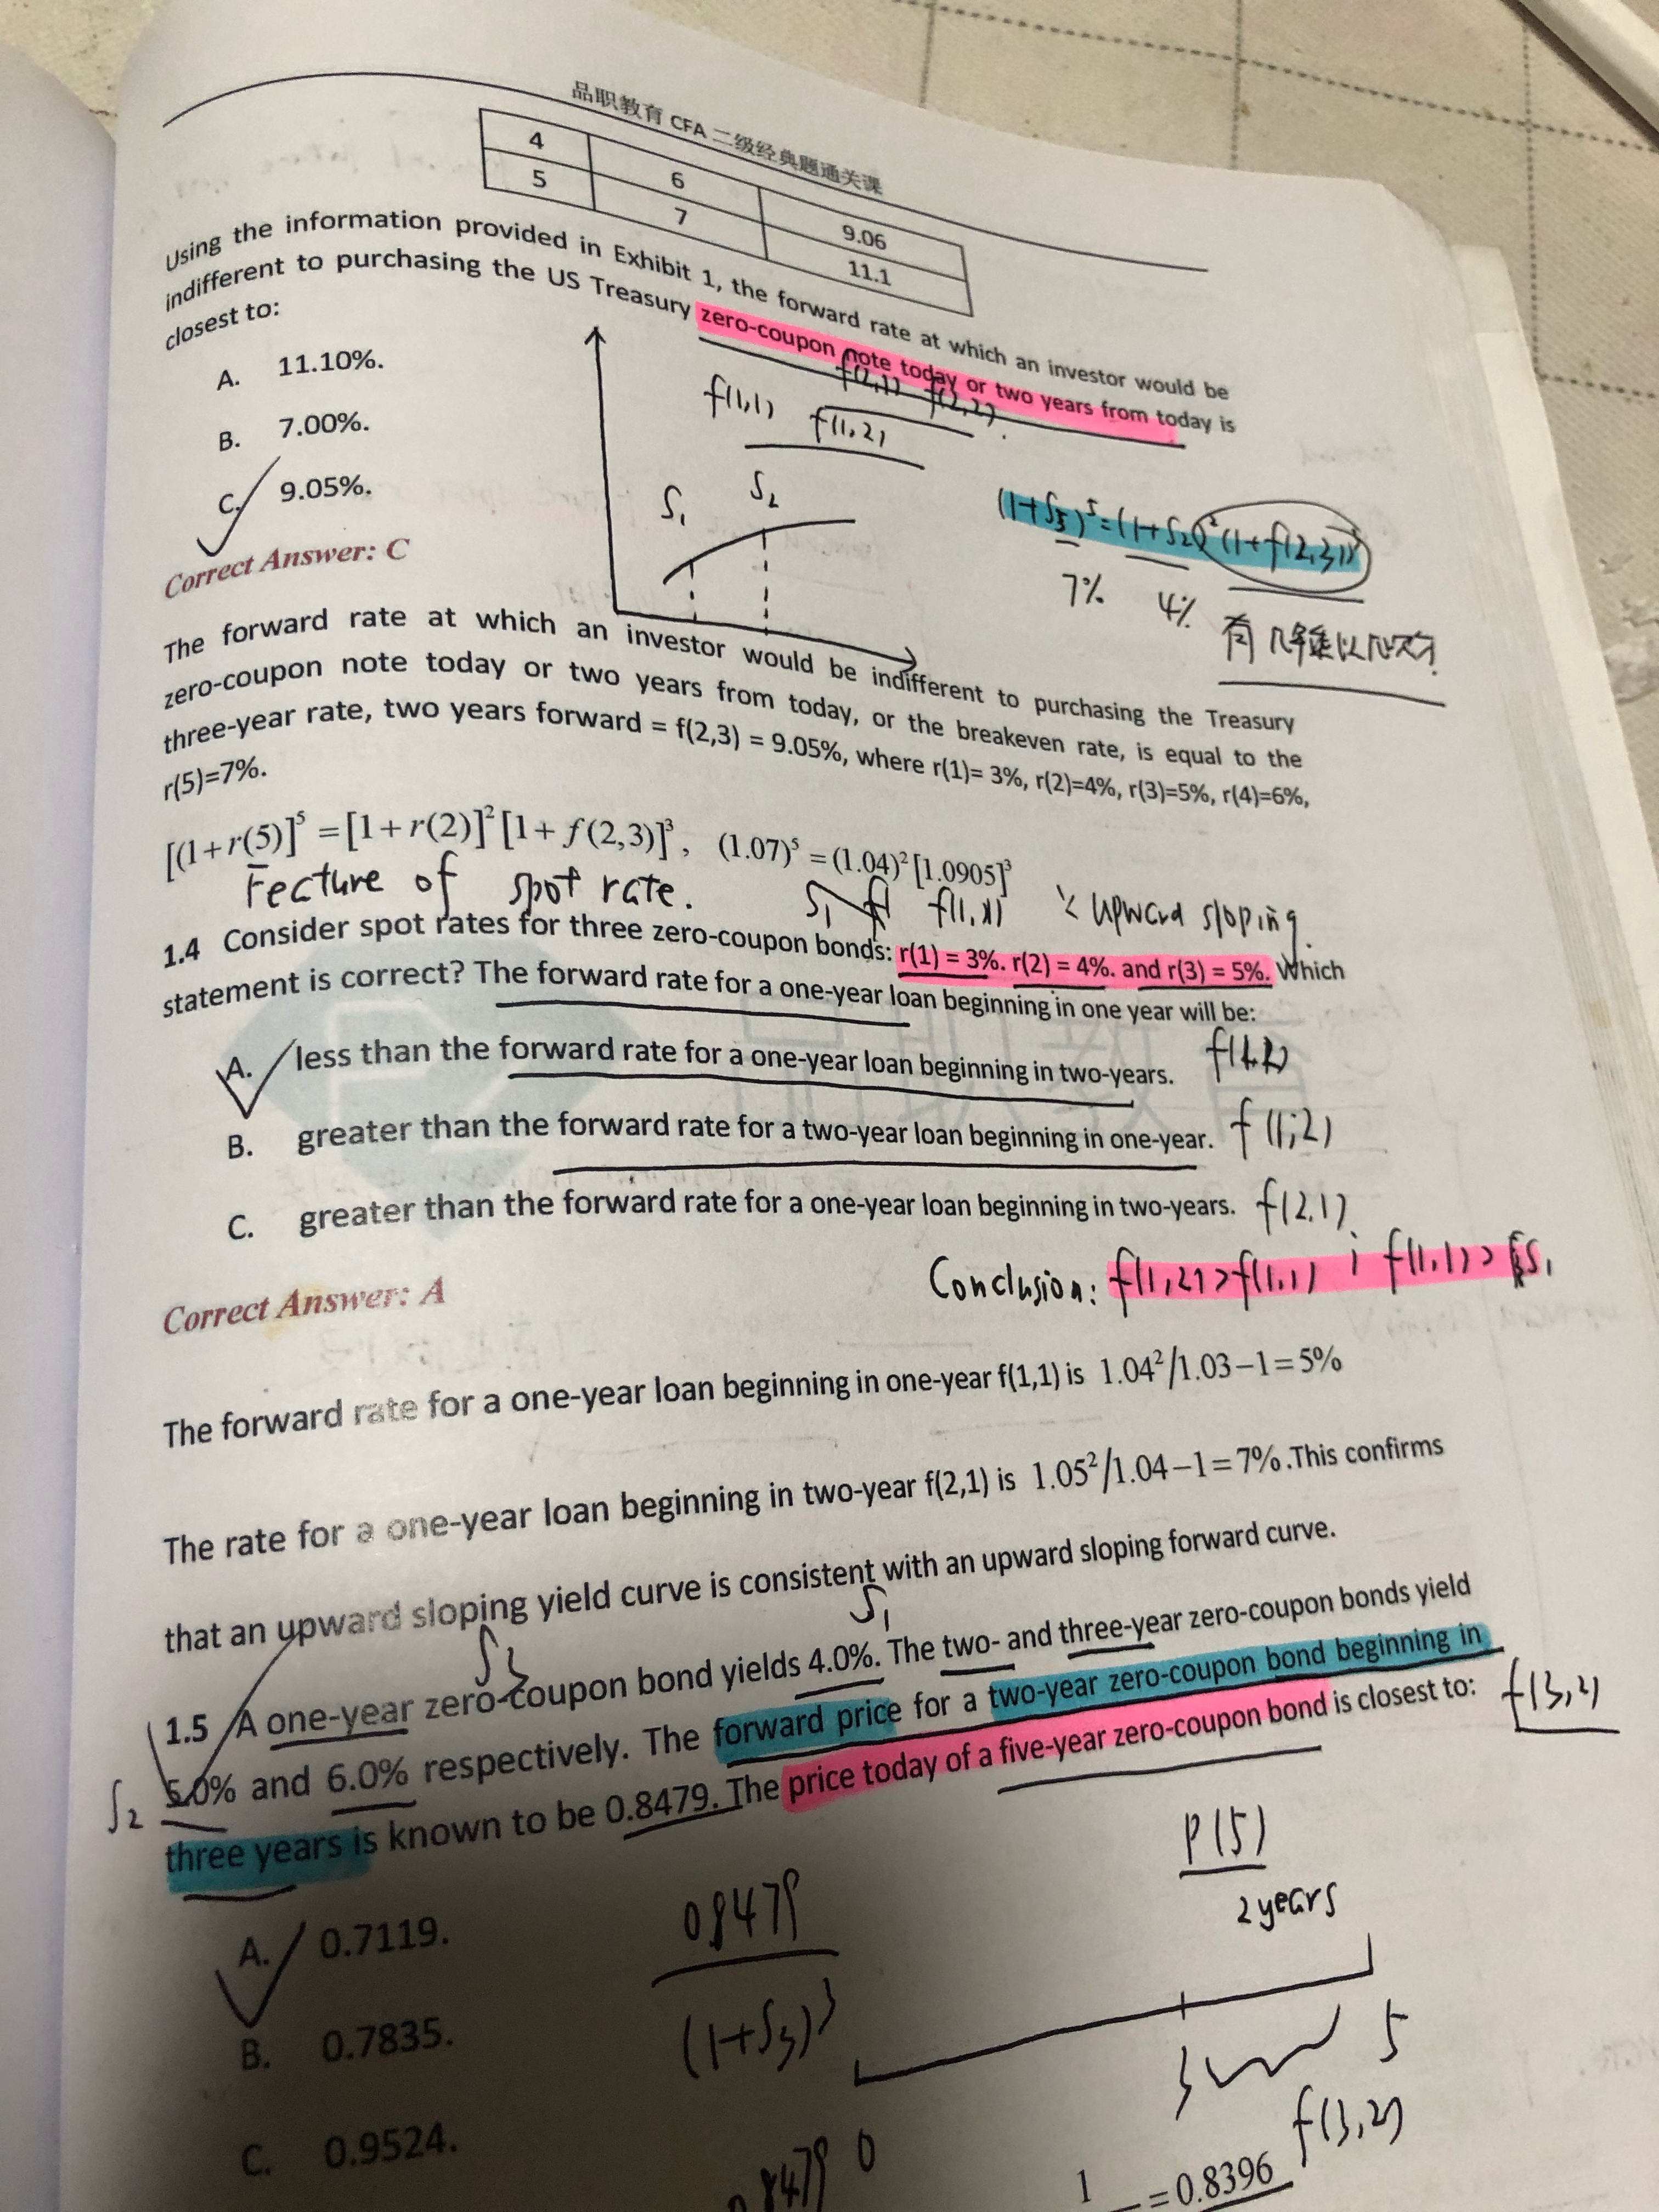 品职教育 CFA 二级经典题通关课
4 6 9.06
5 7 11.1
Using the information provided in Exhibit 1, the forward rate at which an investor would be
indifferent to purchasing the US Treasury zero-coupon note today or two years from today is
closest to:
f(2,1) f(2,2)
f(1,1) f(1,2)
A. 11.10%.
B. 7.00%.
C. 9.05%.
S1 S2
(1+S5)^5=(1+S2)^2(1+f(2,3))^3
7% 4%
Correct Answer: C
The forward rate at which an investor would be indifferent to purchasing the Treasury
zero-coupon note today or two years from today, or the breakeven rate, is equal to the
three-year rate, two years forward = f(2,3) = 9.05%, where r(1)= 3%, r(2)=4%, r(3)=5%, r(4)=6%,
r(5)=7%.
[(1+r(5)]^5 =[1+r(2)]^2[1+f(2,3)]^3, (1.07)^5 =(1.04)^2[1.0905]^3
Fecture of spot rate. S1 f(1,1) upward sloping.
1.4 Consider spot rates for three zero-coupon bonds: r(1) = 3%. r(2) = 4%. and r(3) = 5%. Which
statement is correct? The forward rate for a one-year loan beginning in one year will be:
A. less than the forward rate for a one-year loan beginning in two-years.
B. greater than the forward rate for a two-year loan beginning in one-year. f(1,2)
C. greater than the forward rate for a one-year loan beginning in two-years. f(2,1)
Conclusion: f(1,2)>f(1,1) ; f(1,1)>S1
Correct Answer: A
The forward rate for a one-year loan beginning in one-year f(1,1) is 1.04^2/1.03−1=5%
The rate for a one-year loan beginning in two-year f(2,1) is 1.05^2/1.04−1=7%.This confirms
that an upward sloping yield curve is consistent with an upward sloping forward curve.
S3 S1
1.5 A one-year zero-coupon bond yields 4.0%. The two- and three-year zero-coupon bonds yield
S2 5.0% and 6.0% respectively. The forward price for a two-year zero-coupon bond beginning in
three years is known to be 0.8479. The price today of a five-year zero-coupon bond is closest to: f(3,2)
P(5)
2 years
A. 0.7119.
B. 0.7835.
C. 0.9524.
0.8479
(1+S3)^3
0 3 5
f(3,2)
0.8479
1
=0.8396